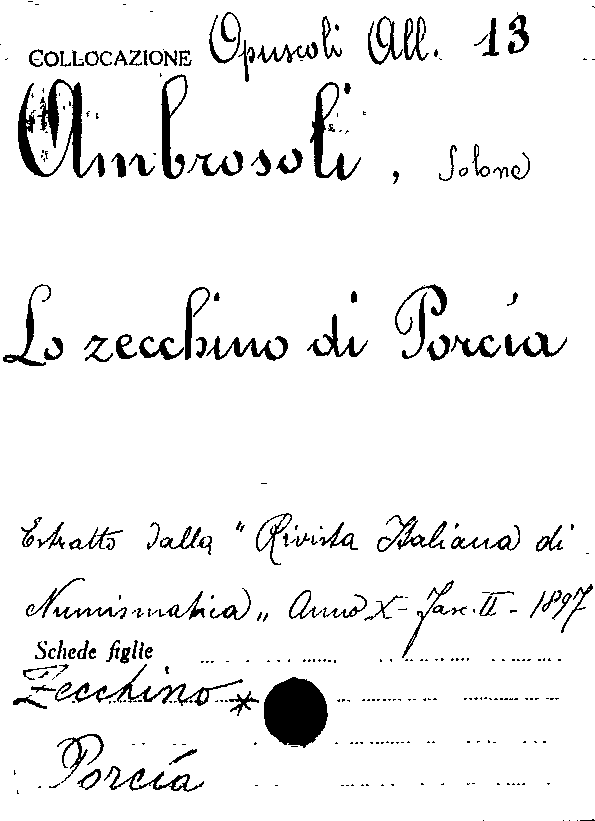 COLLOCAZIONE Opuscoli All. 13
Ambrosoli, Solone
Lo zecchino di Porcía
Estratto dalla "Rivista Italiana di
Numismatica„ Anno X - Fasc. II - 1897
Schede figlie
Zecchino *
Porcía